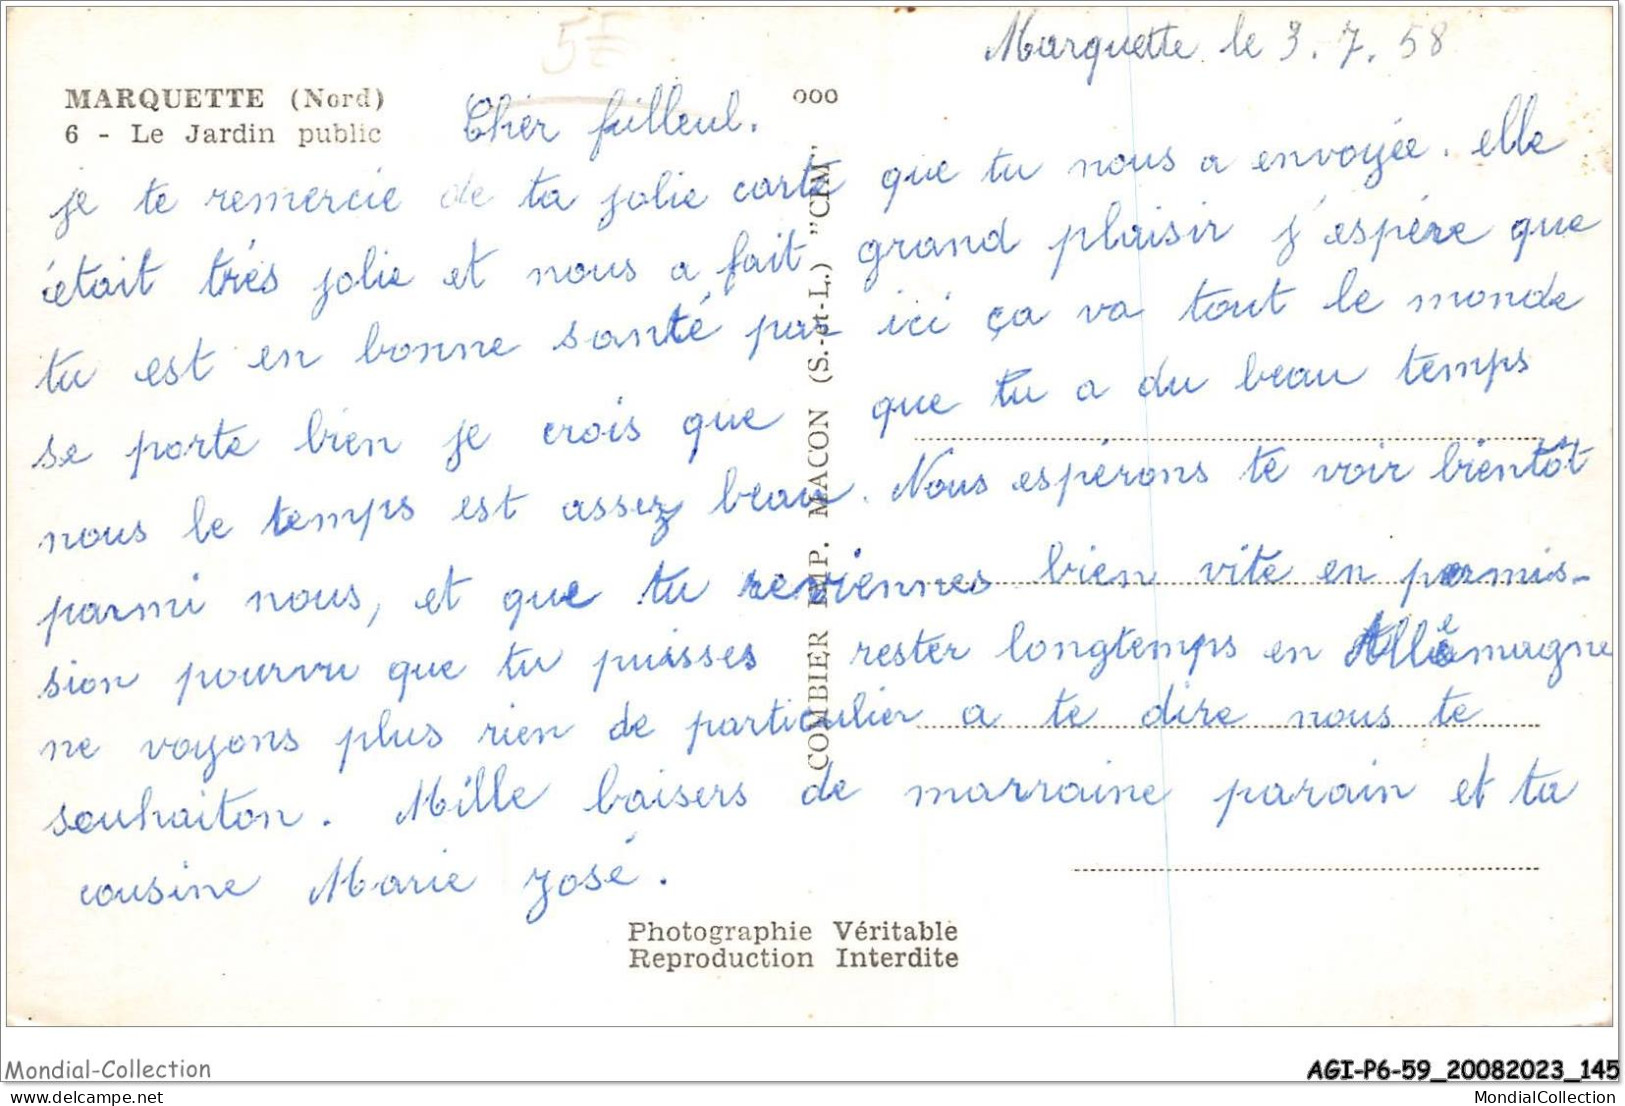 5F
Marquette le 3.7.58
MARQUETTE (Nord)
6 - Le Jardin public
ooo
Cher filleul.
je te remercie de ta jolie carte que tu nous a envoyée. elle
était très jolie et nous a fait grand plaisir j'espére que
tu est en bonne santé par ici ça va tout le monde
se porte bien je crois que que tu a du beau temps
nous le temps est assez beau. Nous espérons te voir bientôt
parmi nous, et que tu reviennes bien vite en permis-
sion pourvu que tu puisses rester longtemps en Allemagne
ne voyons plus rien de particulier a te dire nous te
souhaiton. Mille baisers de marraine parain et ta
cousine Marie José.
COMBIER IMP. MACON (S.-et-L.) "CIM"
Photographie Véritable
Reproduction Interdite
Mondial-Collection
AGI-P6-59_20082023_145
delcampe.net
MondialCollection